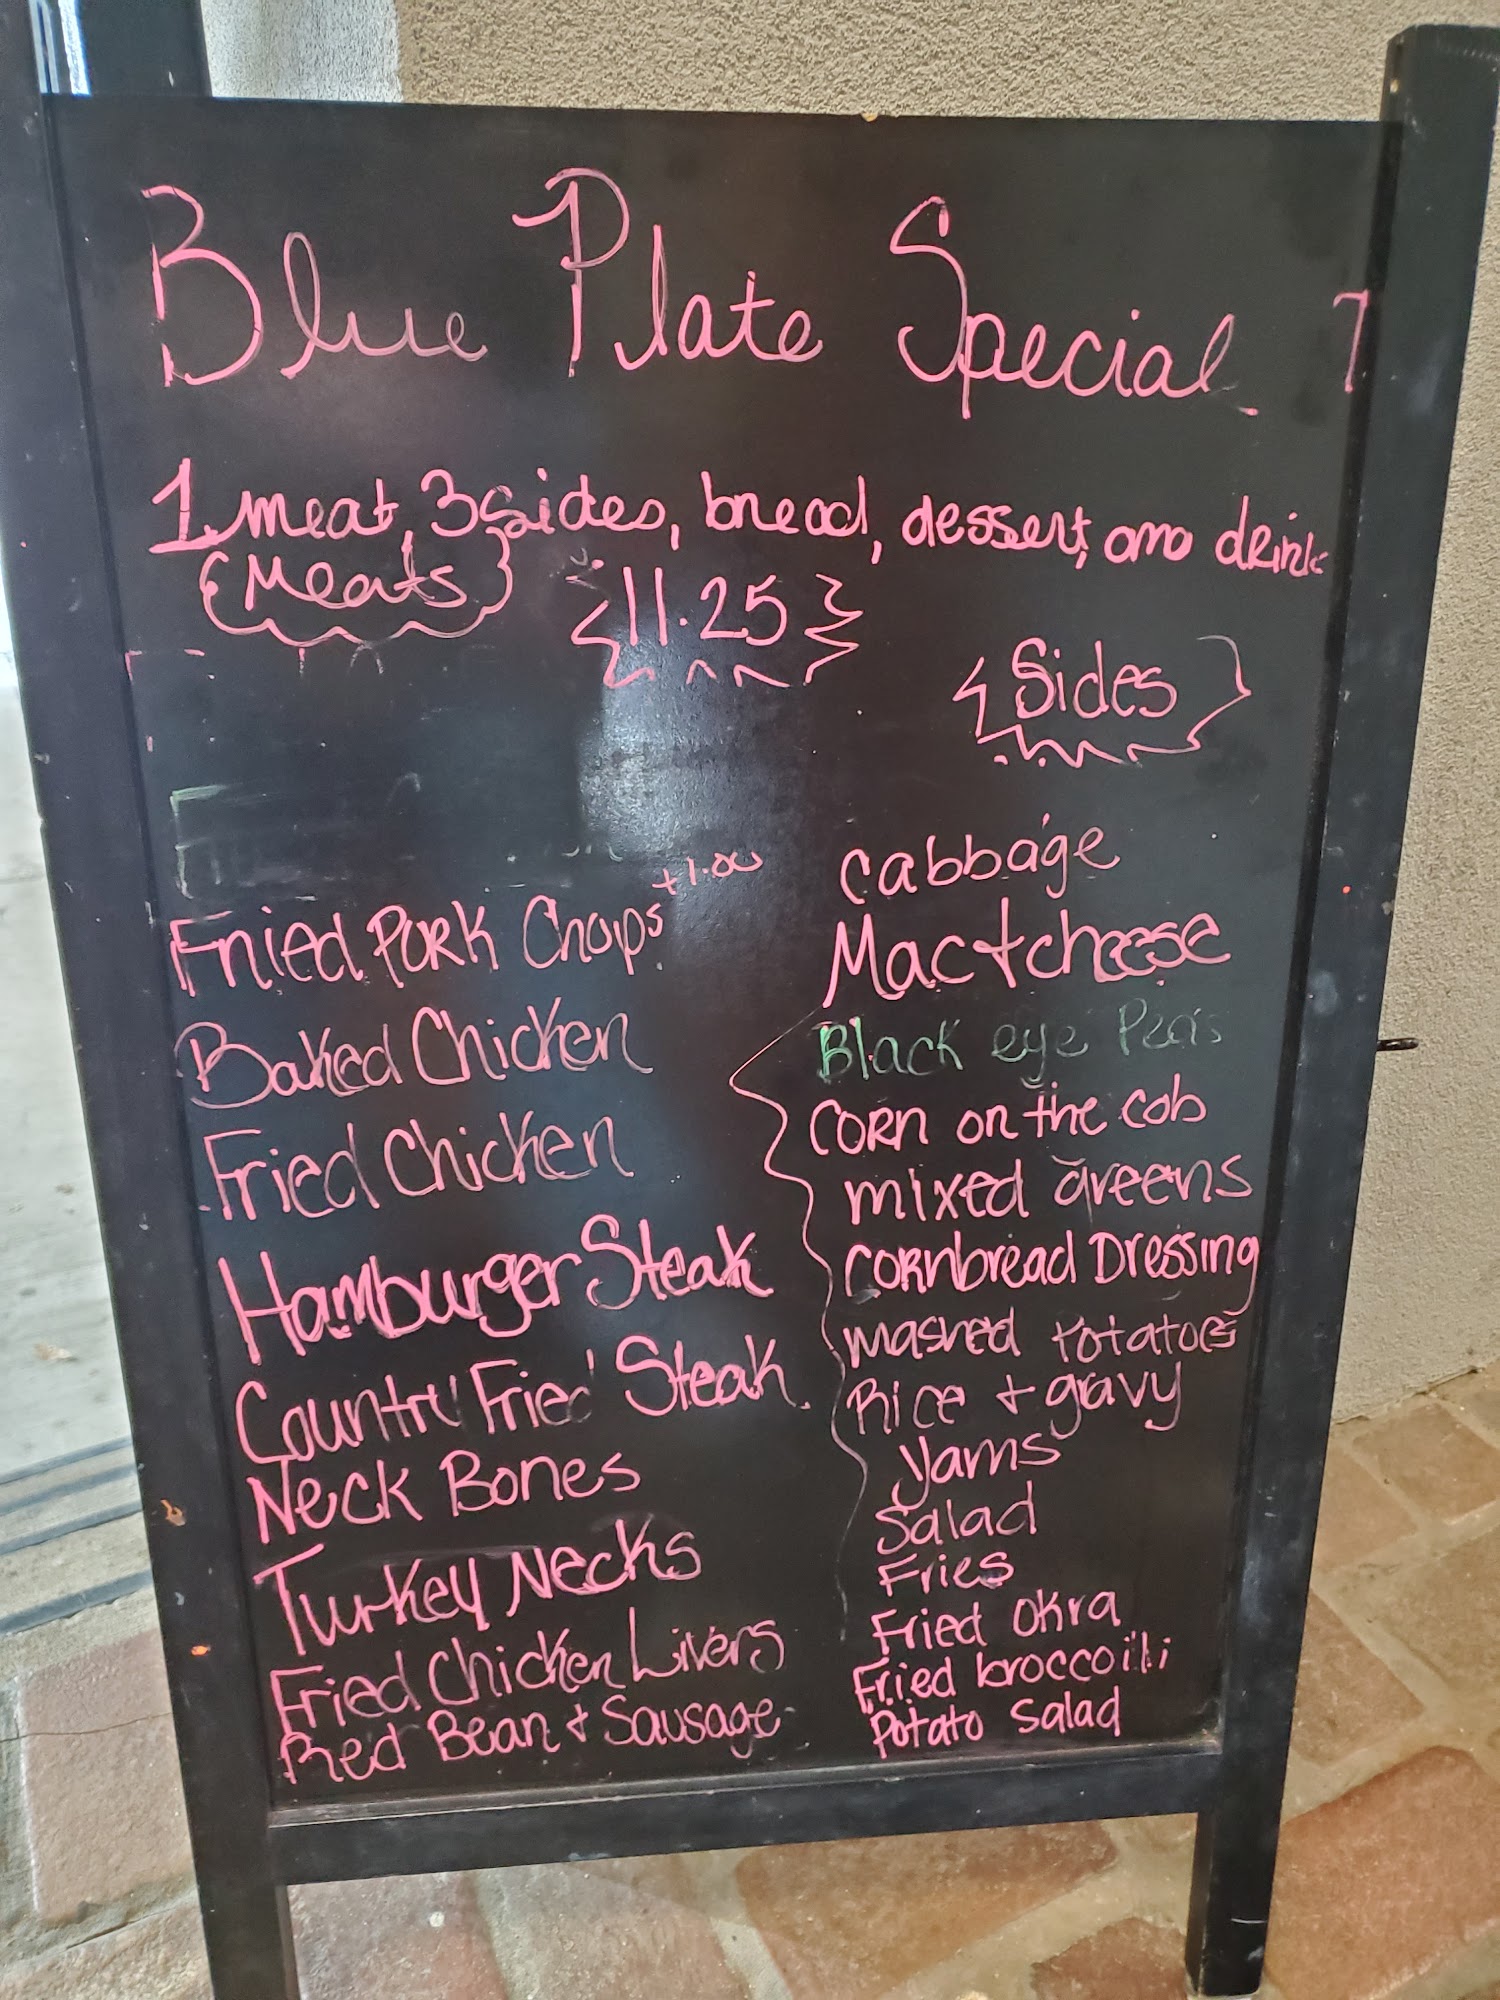 Blue Plate Special
1 meat, 3 sides, bread, dessert, and drink
Meats
11.25
Sides
Fried Pork Chops +1.00
Baked Chicken
Fried Chicken
Hamburger Steak
Country Fried Steak
Neck Bones
Turkey Necks
Fried Chicken Livers
Red Bean + Sausage
Cabbage
Mac+cheese
Black eye Peas
Corn on the cob
mixed greens
Cornbread Dressing
mashed Potatoes
Rice + gravy
Yams
Salad
Fries
Fried Okra
Fried broccoili
Potato Salad